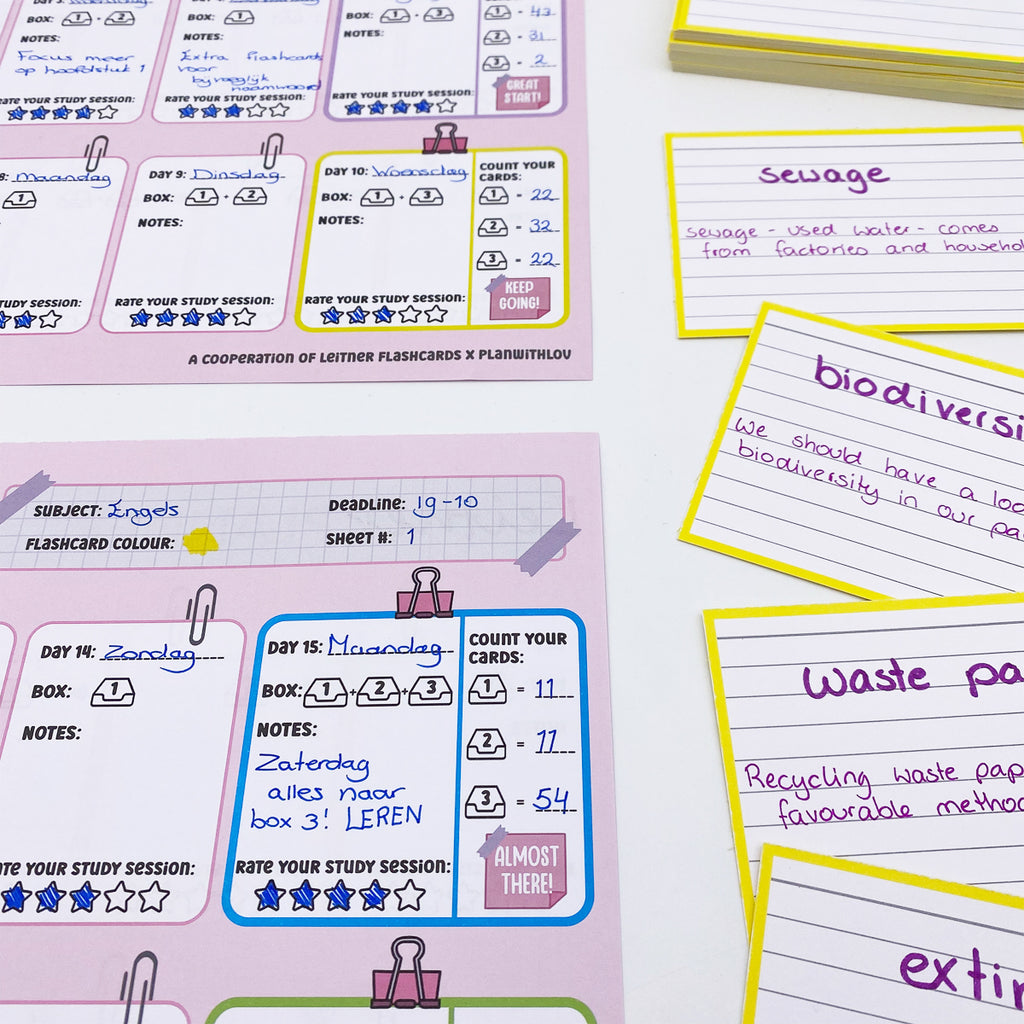 BOX: 1 + 2
NOTES:
Focus meer
op hoofdstuk 1
RATE YOUR STUDY SESSION:
BOX: 1
NOTES:
Extra flashcards
voor
bijvoeglijk
naamwoord
RATE YOUR STUDY SESSION:
BOX: 1 + 3
NOTES:
RATE YOUR STUDY SESSION:
1 = 43
2 = 31
3 = 2
GREAT
START!
8: Maandag
1
STUDY SESSION:
DAY 9: Dinsdag
BOX: 1 + 2
NOTES:
RATE YOUR STUDY SESSION:
DAY 10: Woensdag
BOX: 1 + 3
NOTES:
RATE YOUR STUDY SESSION:
COUNT YOUR
CARDS:
1 = 22
2 = 32
3 = 22
KEEP
GOING!
A COOPERATION OF LEITNER FLASHCARDS X PLANWITHLOV
SUBJECT: Engels
DEADLINE: 19-10
FLASHCARD COLOUR:
SHEET #: 1
DAY 14: Zondag
BOX: 1
NOTES:
RATE YOUR STUDY SESSION:
DAY 15: Maandag
BOX: 1 + 2 + 3
NOTES:
Zaterdag
alles naar
box 3! LEREN
RATE YOUR STUDY SESSION:
COUNT YOUR
CARDS:
1 = 11
2 = 11
3 = 54
ALMOST
THERE!
sewage
sewage - used water - comes
from factories and househol
biodiversi
We should have a loo
biodiversity in our pa
waste pa
Recycling waste pap
favourable metho
extin